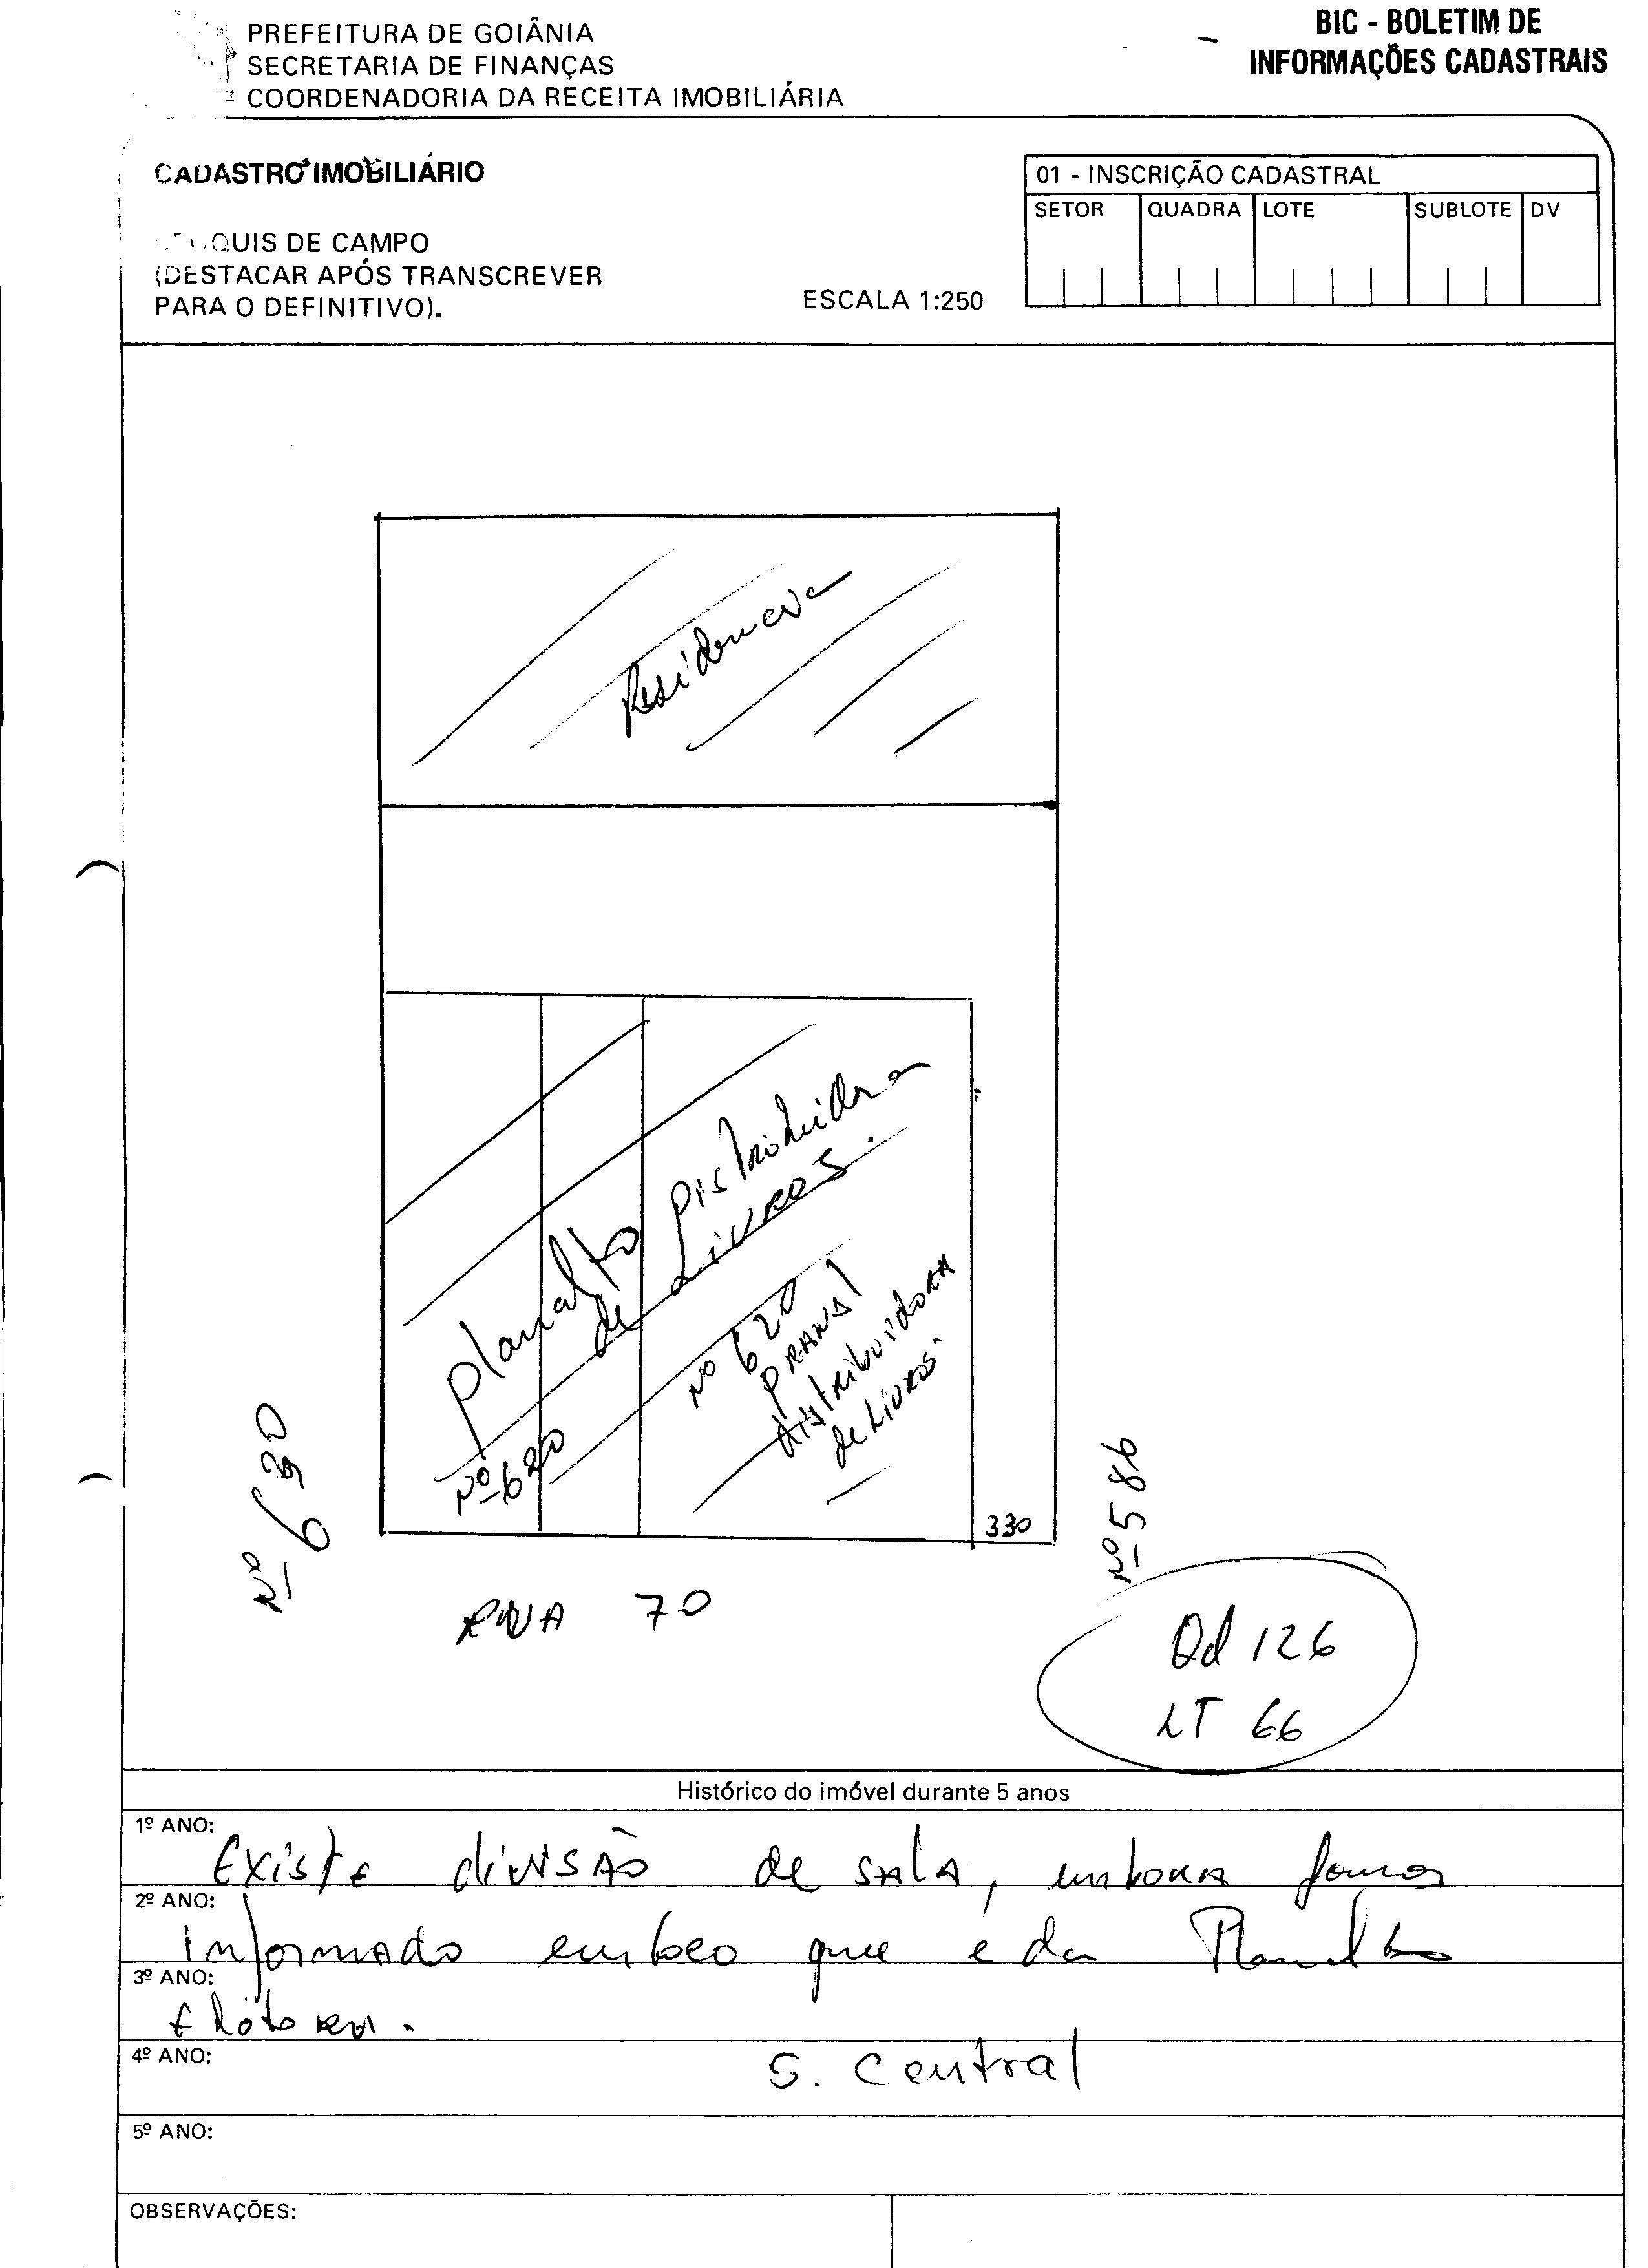 PREFEITURA DE GOIÂNIA
SECRETARIA DE FINANÇAS
COORDENADORIA DA RECEITA IMOBILIÁRIA
BIC - BOLETIM DE
INFORMAÇÕES CADASTRAIS
CADASTRO IMOBILIÁRIO
QUIS DE CAMPO
(DESTACAR APÓS TRANSCREVER
PARA O DEFINITIVO).
ESCALA 1:250
01 - INSCRIÇÃO CADASTRAL
SETOR QUADRA LOTE SUBLOTE DV
Residencia
Planalto Distribuidora
de Livros.
Nº 620
Nº 620
distribuidora
de Livros.
Nº 630
330
Nº 586
RUA 70
Qd 126
LT 66
Histórico do imóvel durante 5 anos
1º ANO:
Existe divisão de sala, embora fomos
2º ANO:
informado em loco que é da Planalto
3º ANO:
4º ANO:
S. Central
5º ANO:
OBSERVAÇÕES: